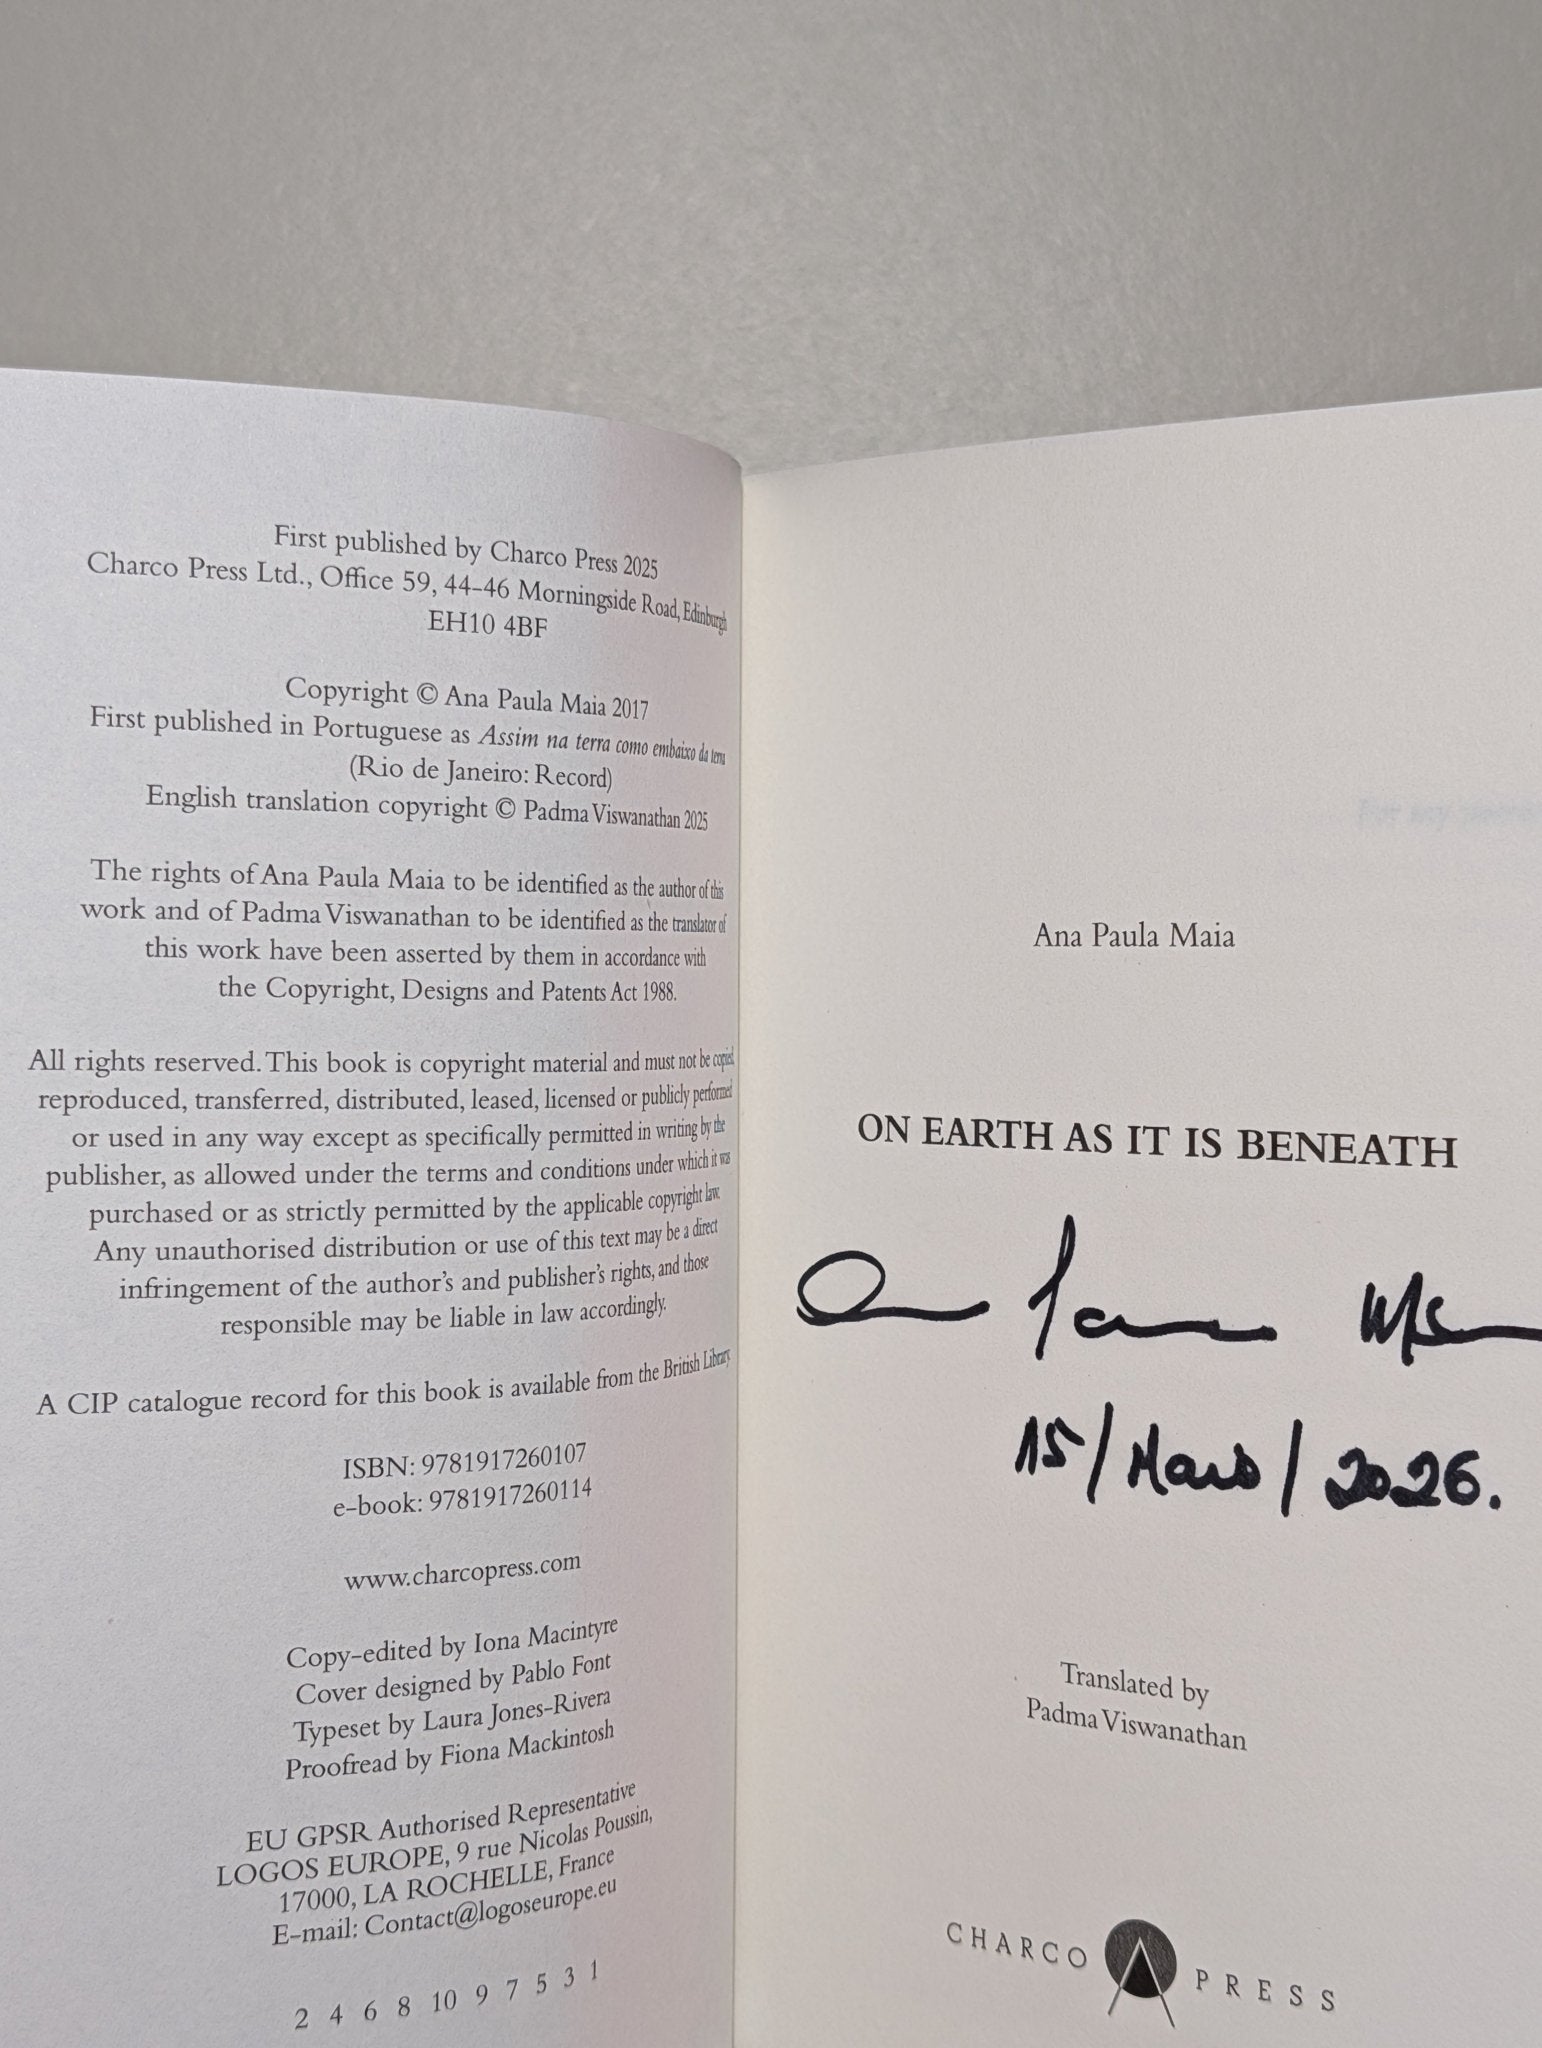 First published by Charco Press 2025
Charco Press Ltd., Office 59, 44-46 Morningside Road, Edinburgh
EH10 4BF
Copyright © Ana Paula Maia 2017
First published in Portuguese as Assim na terra como embaixo da terra
(Rio de Janeiro: Record)
English translation copyright © Padma Viswanathan 2025
The rights of Ana Paula Maia to be identified as the author of this
work and of Padma Viswanathan to be identified as the translator of
this work have been asserted by them in accordance with
the Copyright, Designs and Patents Act 1988.
All rights reserved. This book is copyright material and must not be copied,
reproduced, transferred, distributed, leased, licensed or publicly performed
or used in any way except as specifically permitted in writing by the
publisher, as allowed under the terms and conditions under which it was
purchased or as strictly permitted by the applicable copyright law.
Any unauthorised distribution or use of this text may be a direct
infringement of the author's and publisher's rights, and those
responsible may be liable in law accordingly.
A CIP catalogue record for this book is available from the British Library.
ISBN: 9781917260107
e-book: 9781917260114
www.charcopress.com
Copy-edited by Iona Macintyre
Cover designed by Pablo Font
Typeset by Laura Jones-Rivera
Proofread by Fiona Mackintosh
EU GPSR Authorised Representative
LOGOS EUROPE, 9 rue Nicolas Poussin,
17000, LA ROCHELLE, France
E-mail: Contact@logoseurope.eu
2 4 6 8 10 9 7 5 3 1
Ana Paula Maia
ON EARTH AS IT IS BENEATH
15/ /2026.
Translated by
Padma Viswanathan
CHARCO PRESS